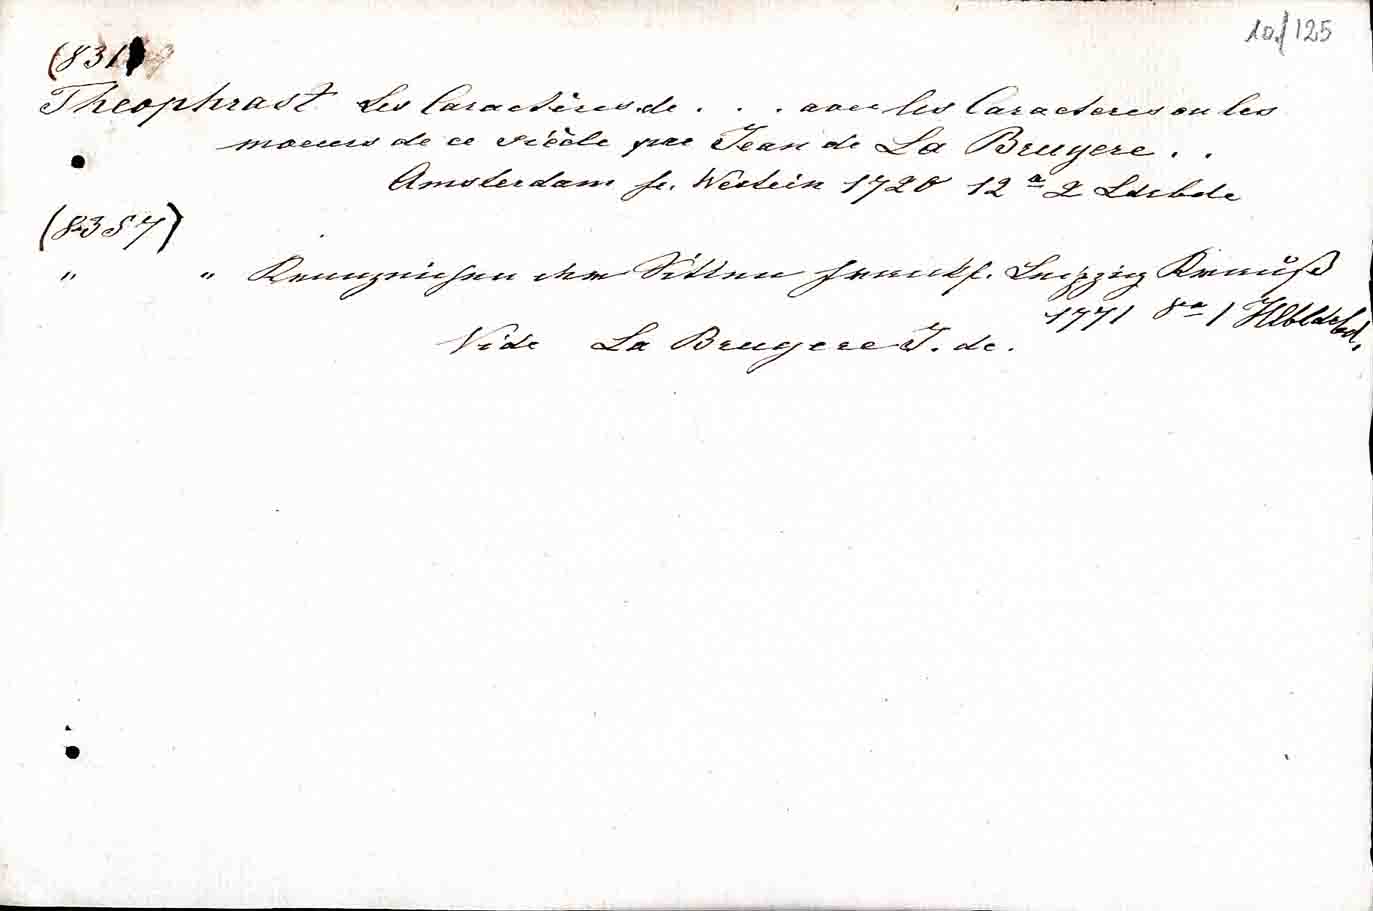 10./125
(831
Theophrast Les Caractères de . . . avec les Caracteres ou les
moeurs de ce siècle par Jean de La Bruyere . .
Amsterdam fr. Westein 1720 12ª 2 Ldrbde
(8357)
" " Kennzeichen der Sitten Franckf. Leipzig Krauß
1771 8ª 1 Hlbldrbd.
Vide La Bruyere J. de.